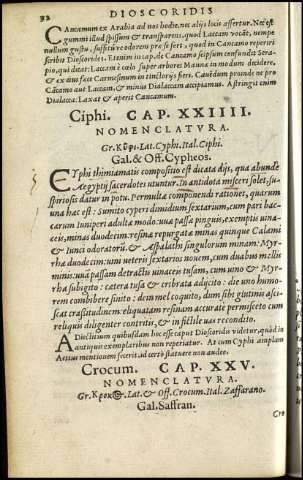 92 DIOSCORIDIS
Cancamum ex Arabia ad nos hodie, nec alijs locis assertur. Nec est
gummi illud spissum & transparens, quod Laccam vocāt, nempe
nullum gustu, suffitu ve odorem præ se fert, quod in Cancamo reperiri
scribit Dioscorides. Etenim in cap. de Cancamo seipsum consundit Serapio,
qui dicat: Laccam è cœlo super arbores Manna in modum decidere,
& ex ea fieri Carmesinum in tinctorijs fieri. Cauēdum proinde ne pro
Cācamo aut Laccam, & minus Dialaccam accipiamus. Astringit enim
Dialacca: Laxat & aperit Cancamum.
Ciphi. CAP. XXIIII.
NOMENCLATVRA.
Gr. Κῦφι. Lat. Cyphi. Ital. Ciphi.
Gal. & Off. Cypheos.
Cyphi thimiamatis compositio est dicata dijs, qua abundè
Aegyptij sacerdotes utuntur. In antidota misceri solet, suspiriosis
datur in potu. Permulta componendi rationes, quarum
una hæc est: Sumito cyperi dimidium sextarium, cum pari baccarum
Iuniperi adultæ modo. uuæ passæ pinguis, exemptis uinaceis,
minas duodecim. resinæ repurgatæ minas quinque Calami
& Iunci odoratorū, & Aspalathi singulorum minam: Myrrhæ
duodecim: uini ueteris sextarios nouem, cum duabus mellis
minis: uuā passam detractis uinaceis tusam, cum uino & Myrrha
subigito: cetera tusa & cribrata adijcito: die uno humorem
combibere sinito: dein mel coquito, dum sibi glutinis asciscat
crassitudinem: eliquatam resinam accurate permisceto cum
reliquis diligenter contritis, & in fictile uas recondito.
Adiectitium quibusdam hoc esse caput Dioscorides videtur, quòd in
antiquis exemplaribus non reperiatur. At cum Cyphi amplam
Aetius mentionem fecerit. id certò statuere non audeo.
Crocum. CAP. XXV.
NOMENCLATVRA.
Gr. Κροκος. Lat. & Off. Crocum. Ital. Zaffarano.
Gal. Saffran.
Cro